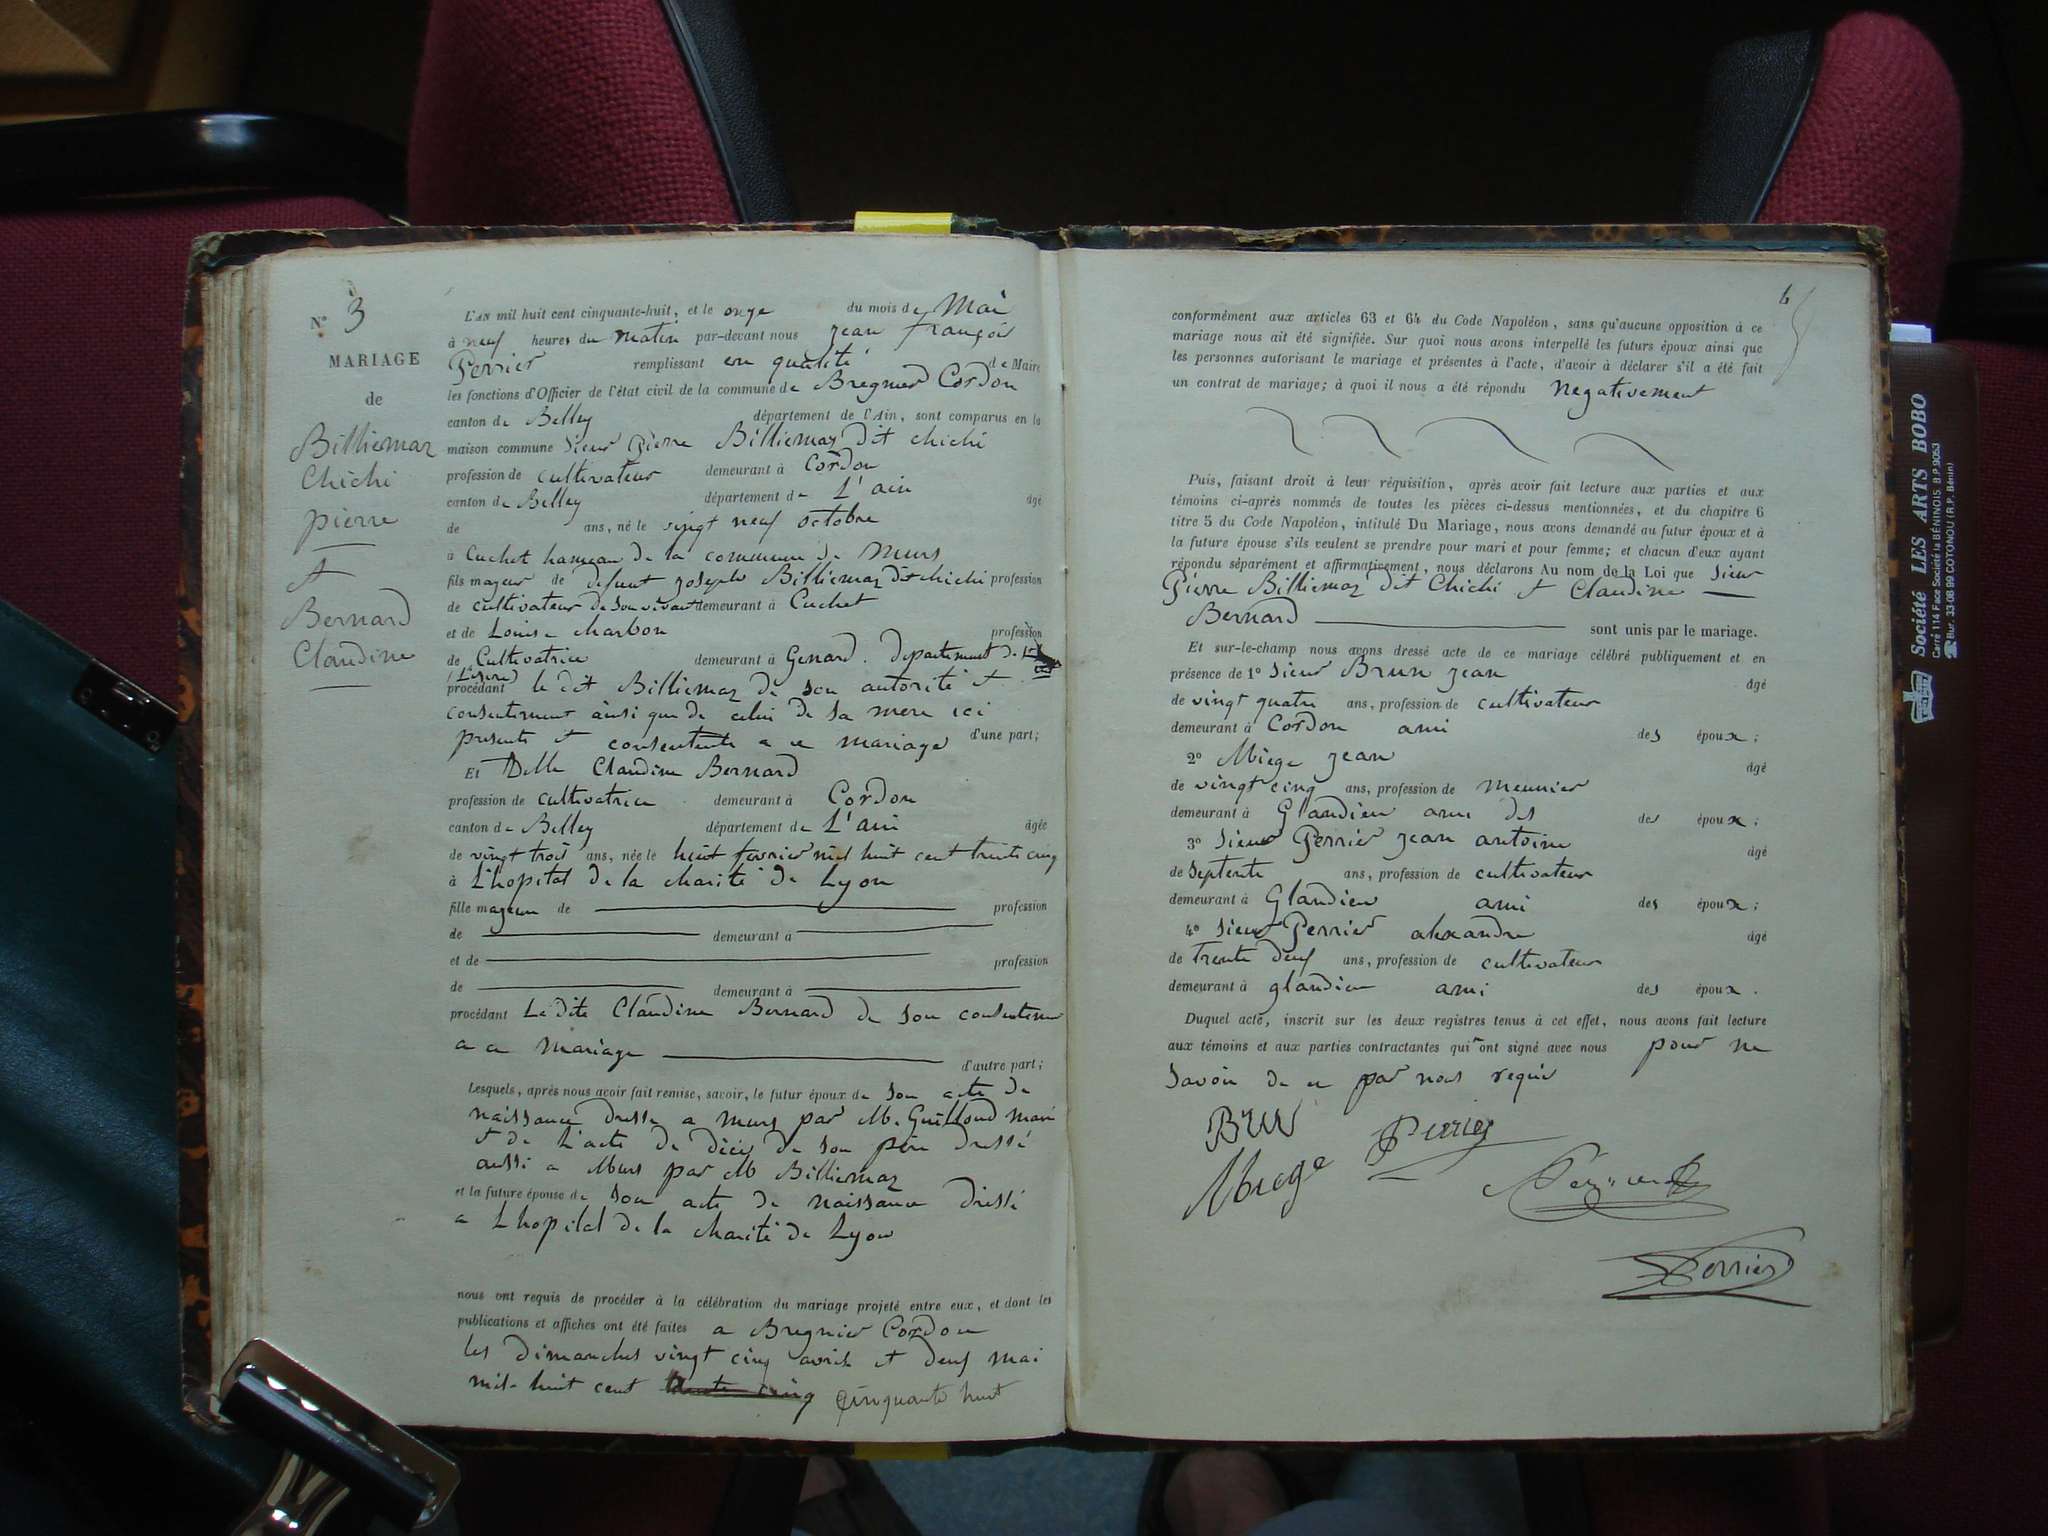 N° 3
MARIAGE
de
Billiemaz
Chichi
pierre
et
Bernard
Claudine
L'AN mil huit cent cinquante-huit, et le onze du mois de Mai
à neuf heures du matin par-devant nous jean françois
Perrier remplissant en qualité de Maire
les fonctions d'Officier de l'état civil de la commune de Bregnier Cordon
canton de Belley département de l'Ain, sont comparus en la
maison commune Sieur Pierre Billiemaz dit chichi
profession de cultivateur demeurant à Cordon
canton de Belley département de L'ain âgé
de ans, né le vingt neuf octobre
à Cuchet hameau de la commune de Murs
fils majeur de defunt joseph Billiemaz dit chichi profession
de cultivateur de son vivant demeurant à Cuchet
et de Louise charbon profession
de Cultivatrice demeurant à Genard. departement de
(Lisere)
procédant le dit Billiemaz de son autorité et
consentement ainsi que de celui de sa mere ici
presente et consentente a ce mariage d'une part;
Et Delle Claudine Bernard
profession de cultivatrice demeurant à Cordon
canton de Belley département de L'ain âgée
de vingt trois ans, née le huit fevrier mil huit cent trente cinq
à L'hopital de la charité de Lyon
fille majeure de profession
de demeurant à
et de profession
de demeurant à
procédant La dite Claudine Bernard de son consentemen
a ce mariage d'autre part;
Lesquels, après nous avoir fait remise, savoir, le futur époux de son acte de
naissance dressé a murs par M. Guilloud maire
et de L'acte de décès de son père dressé
aussi a Murs par M Billiemaz
et la future épouse de son acte de naissance dressé
a L'hopital de la charité de Lyon
nous ont requis de procéder à la célébration du mariage projeté entre eux, et dont les
publications et affiches ont été faites a Bregnier Cordon
les dimanches vingt cinq avril et deux mai
mil huit cent trente cinq cinquante huit
conformément aux articles 63 et 64 du Code Napoléon, sans qu'aucune opposition à ce
mariage nous ait été signifiée. Sur quoi nous avons interpellé les futurs époux ainsi que
les personnes autorisant le mariage et présentes à l'acte, d'avoir à déclarer s'il a été fait
un contrat de mariage; à quoi il nous a été répondu negativement
Puis, faisant droit à leur réquisition, après avoir fait lecture aux parties et aux
témoins ci-après nommés de toutes les pièces ci-dessus mentionnées, et du chapitre 6
titre 5 du Code Napoléon, intitulé Du Mariage, nous avons demandé au futur époux et à
la future épouse s'ils veulent se prendre pour mari et pour femme; et chacun d'eux ayant
répondu séparément et affirmativement, nous déclarons Au nom de la Loi que Sieur
Pierre Billiemaz dit Chichi et Claudine
Bernard sont unis par le mariage.
Et sur-le-champ nous avons dressé acte de ce mariage célébré publiquement et en
présence de 1° Sieur Brun jean âgé
de vingt quatre ans, profession de cultivateur
demeurant à Cordon ami des époux;
2° Miege jean âgé
de vingt cinq ans, profession de meunier
demeurant à Glandieu ami des des époux;
3° Sieur Perrier jean antoine âgé
de septente ans, profession de cultivateur
demeurant à Glandieu ami des époux;
4° Sieur Perrier alexandre âgé
de trente deux ans, profession de cultivateur
demeurant à glandieu ami des époux.
Duquel acte, inscrit sur les deux registres tenus à cet effet, nous avons fait lecture
aux témoins et aux parties contractantes qui ont signé avec nous pour ne
savoir de ce par nous requis
Brun Perrier
Miege
Perrier
Société LES ARTS BOBO
Carré 114 Face Société la BÉNINOIS B.P. 9053
Bur. 33-08-99 COTONOU (R.P. Bénin)